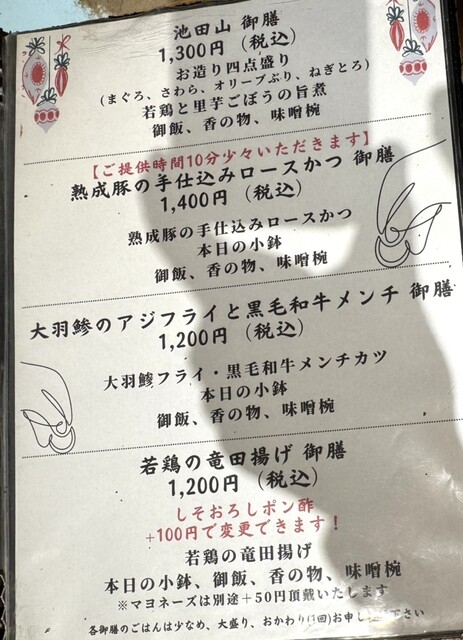 池田山 御膳
1,300円（税込）
お造り四点盛り
(まぐろ、さわら、オリーブぶり、ねぎとろ)
若鶏と里芋ごぼうの旨煮
御飯、香の物、味噌椀
【ご提供時間10分少々いただきます】
熟成豚の手仕込みロースかつ 御膳
1,400円（税込）
熟成豚の手仕込みロースかつ
本日の小鉢
御飯、香の物、味噌椀
大羽鯵のアジフライと黒毛和牛メンチ 御膳
1,200円（税込）
大羽鯵フライ・黒毛和牛メンチカツ
本日の小鉢
御飯、香の物、味噌椀
若鶏の竜田揚げ 御膳
1,200円（税込）
しそおろしポン酢
+100円で変更できます！
若鶏の竜田揚げ
本日の小鉢、御飯、香の物、味噌椀
※マヨネーズは別途＋50円頂戴いたします
各御膳のごはんは少なめ、大盛り、おかわり(1回)お申し下さい